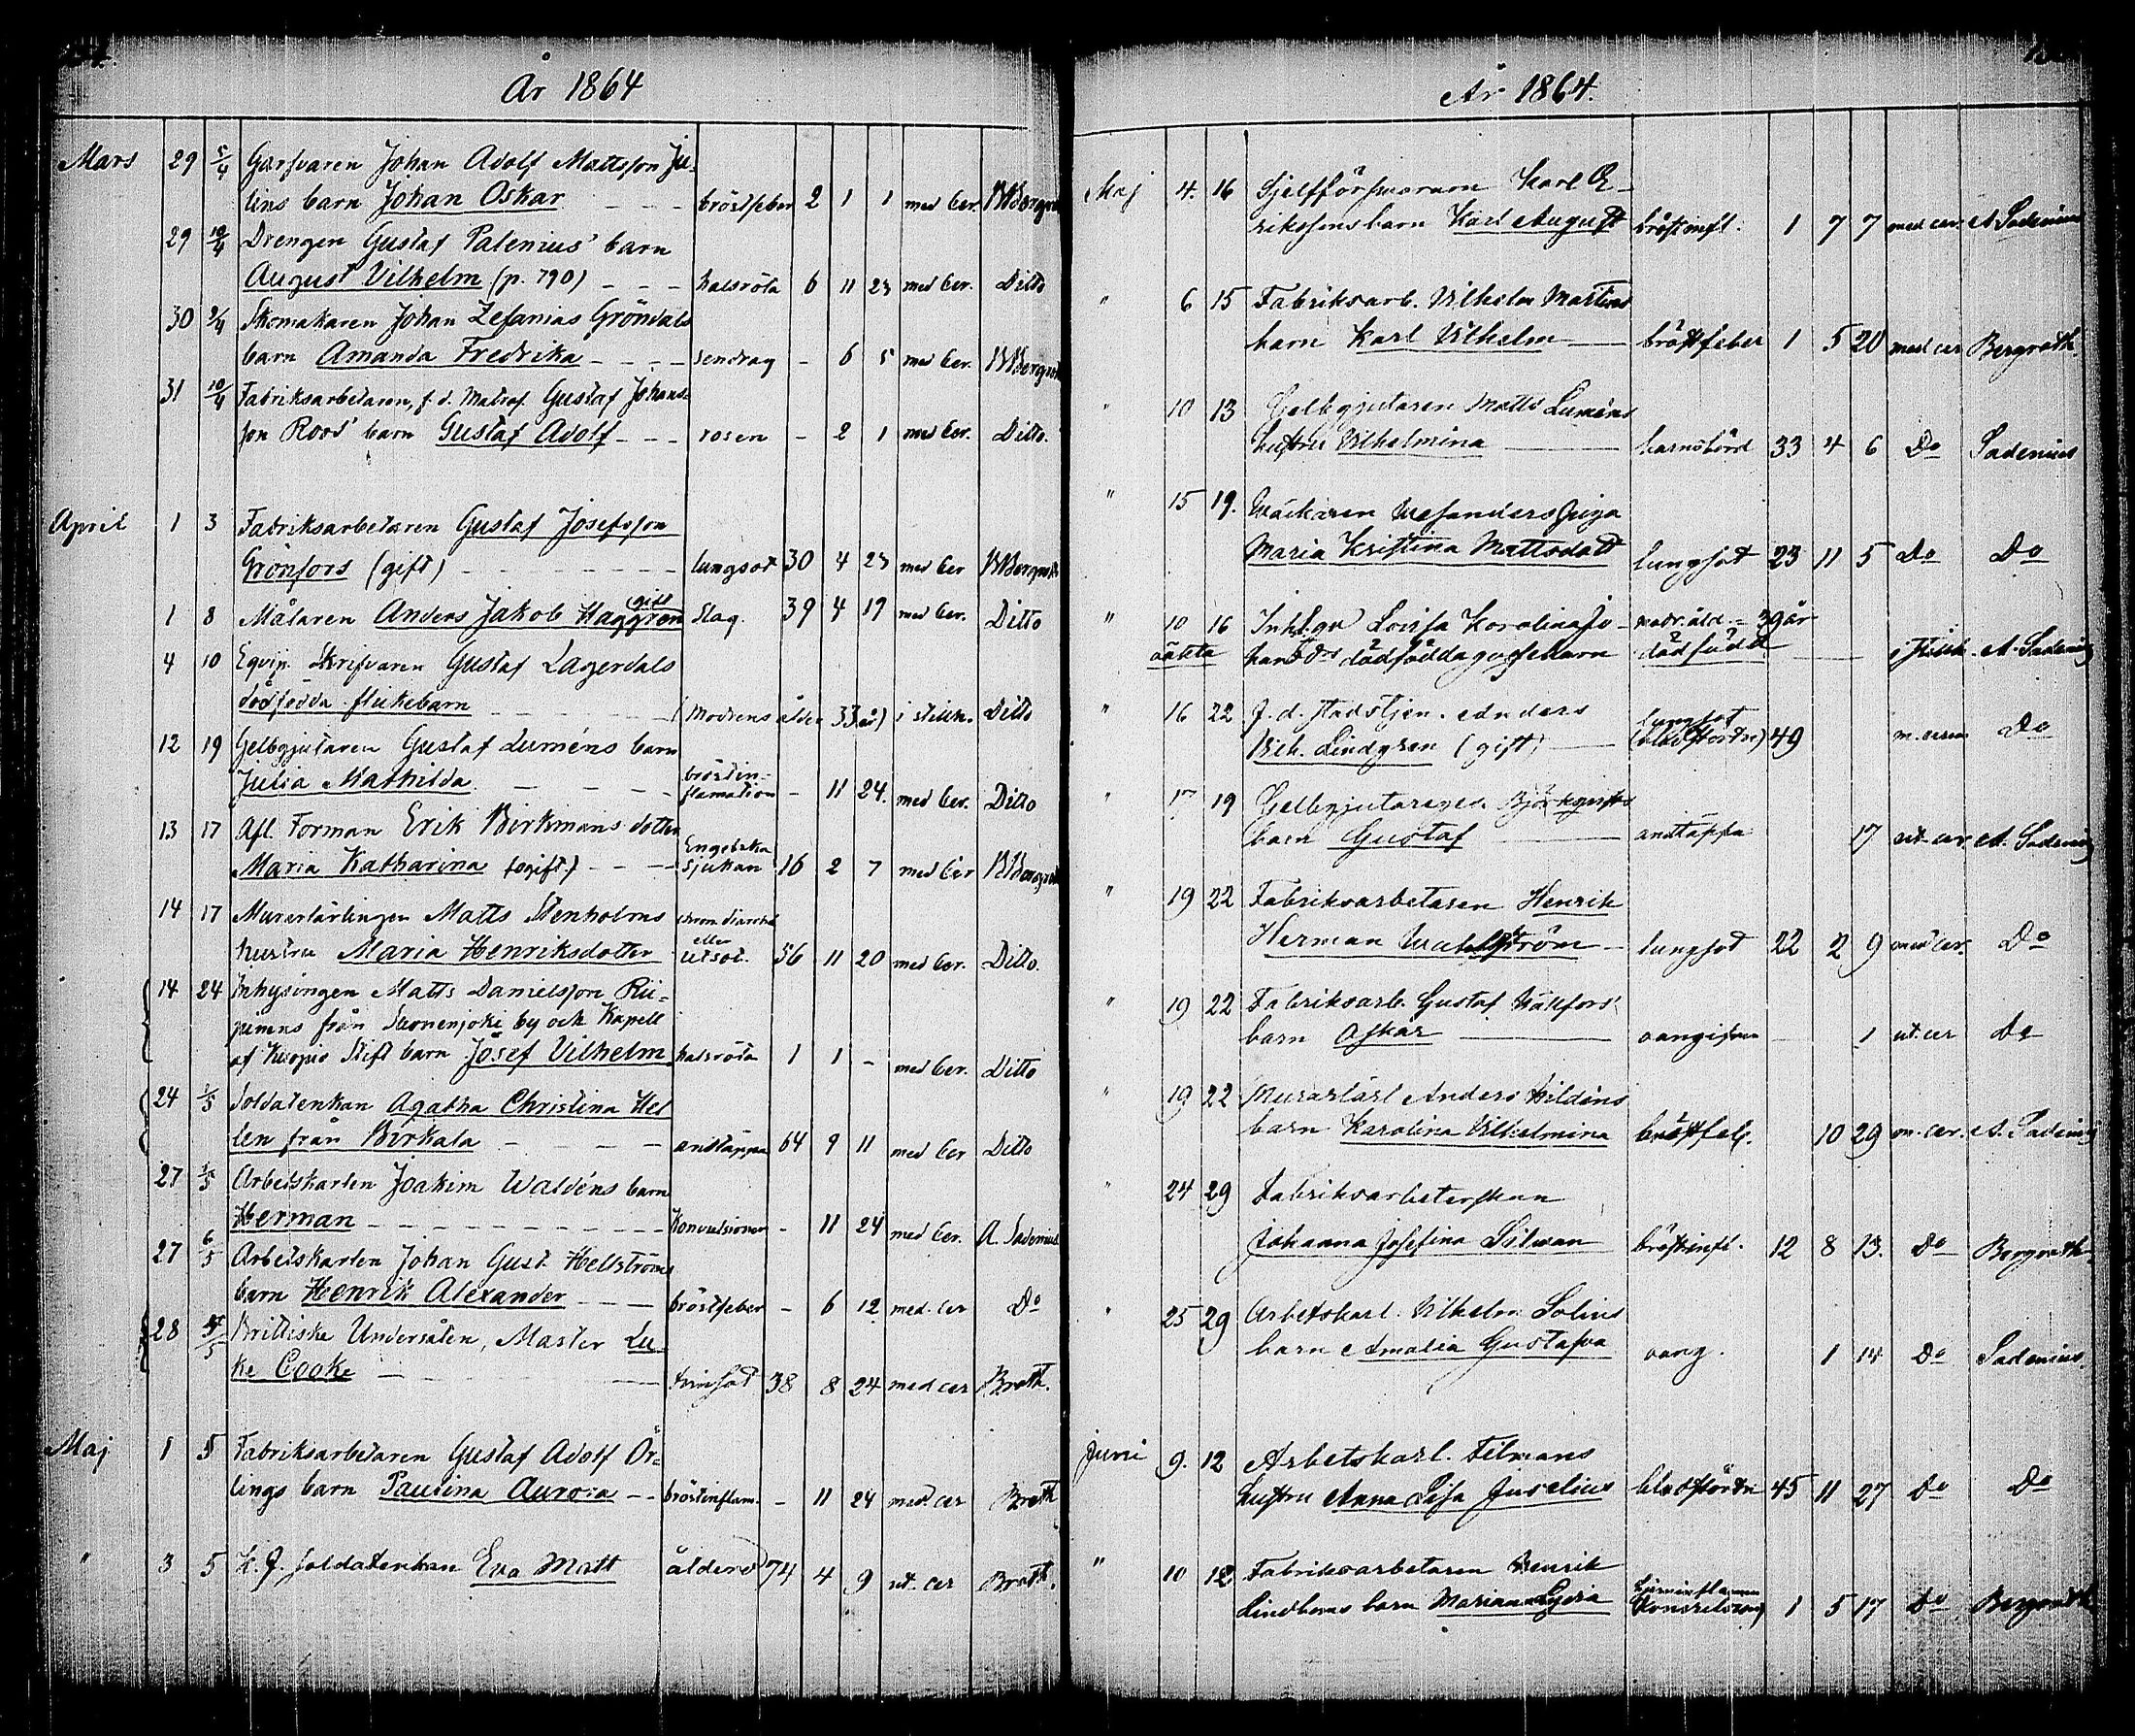 År 1864
Mars 29 5/4 Garfvaren Johan Adolf Mattsson Ju-
lins barn Johan Oskar - - - bröstfeber 2 1 1 med cer.
29 10/4 Drengen Gustaf Palenius' barn
August Vilhelm (p. 790) - - - halsröta 6 11 23 med cer. Ditto
30 2/4 Skomakaren Johan Zefanias Gröndals
barn Amanda Fredrika - - - - sendrag - 6 5 med cer.
31 10/4 Fabriksarbetaren, f. d. Matros Gustaf Johans-
son Roos' barn Gustaf Adolf - - - rosen - 2 1 med cer. Ditto.
April 1 3 Fabriksarbetaren Gustaf Josefsson
Grönfors (gift) - - - lungsot 30 4 23 med cer
gift
1 8 Målaren Anders Jakob Haggren Slag. 39 4 19 med cer. Ditto
4 10 Eqvip. Skrifvaren Gustaf Lagerdals
dödfödda flickebarn - - - (Modrens ålder 33 år) i stillh. Ditto
12 19 Gelbgjutaren Gustaf Luméns barn
Julia Mathilda - - - bröstin-
flamation - 11 24. med cer. Ditto
13 17 Afl. Forman Erik Birkmans dotter
Maria Katharina (ogift.) - - - Engelska
sjukan 16 2 7 med cer
14 17 Murarlärlingen Matts Stenholms
hustru Maria Henriksdotter
eller
utsot. 56 11 20 med cer. Ditto.
14 24 Inhysingen Matts Danielsson
från by och Kapell
af Kuopio Stift barn Josef Vilhelm halsröta 1 1 - med cer. Ditto
24 1/5 Soldatenkan Agatha Christina Hel
len från Birkala - - - andtäppa 64 9 11 med cer Ditto
27 1/5 Arbetskarlen Joakim Waldéns barn
Herman - - - Konvulsioner - 11 24 med cer. A. Sadenius
27 6/5 Arbetskarlen Johan Gust. Hellströms
barn Henrik Alexander - - - bröstfeber - 6 12 med cer Do
28 Brittiske Undersåten, Master Lu-
ke Cooke - - - 38 8 24 med cer Brgth.
Maj 1 5 Fabriksarbetaren Gustaf Adolf Ör-
lings barn Paulina Aurora - - bröstinflam. - 11 24 med cer Brgth
" 3 5 K. J. soldatenkan Eva Matt ålderd 74 4 9 ut. cer Brgth.
År 1864.
Maj 4. 16 Sjelfförsvararn Karl E-
rikssons barn Karl August bröstinfl. 1 7 7 med cer. A Sadenius
" 6 15 Fabriksarb. Vilhelm Martins
barn Karl Vilhelm bröstfeber 1 5 20 med cer Bergroth.
" 10 13 Gelbgjutaren Matts Luméns
hustru Vilhelmina barnsbörd 33 4 6 Do Sadenius
" 15 19. piga
Maria Kristina Mattsdott lungsot 23 11 5 Do Do
" 10 16 Inh. qv Lovisa Karolina Jo- modr. åld. = 39 år
oäkta hansdrs dödfödda gossebarn dödfödd i stillh. A. Sadenius
" 16 22 F. d. stadstjen. Anders
Vilh. Lindgren (gift) lungsot
(blodstörtn) 49 Do
" 17 19 Gelbgjutaregea. Björkqvists
barn Gustaf andtäppa 17 ut. cer A. Sadenius
" 19 22 Fabriksarbetaren Henrik
Herman Wahlström lungsot 22 2 9 med cer. Do
" 19 22 Fabriksarb. Gustaf
barn Oskar oangifven 1 ut. cer Do
" 19 22 Murarlärl Anders Hildéns
barn Karolina Vilhelmina bröstfeb. 10 29 m. cer. A. Sadenius
" 24 29 Fabriksarbeterskan
Johanna Josefina Silman bröstinfl. 12 8 13. Do Bergroth
" 25 29 Arbetskarl. Vilhelm Solins
barn Amalia Gustafva oang. 1 14 Do Sadenius
Juni 9. 12 Arbetskarl. Filmans
hustru Anna Lisa Juselius blodstörtn 45 11 27 Do Do
" 10 12 Fabriksarbetaren Henrik
Lindboms barn Mariana Lydia 1 5 17 Do Bergroth